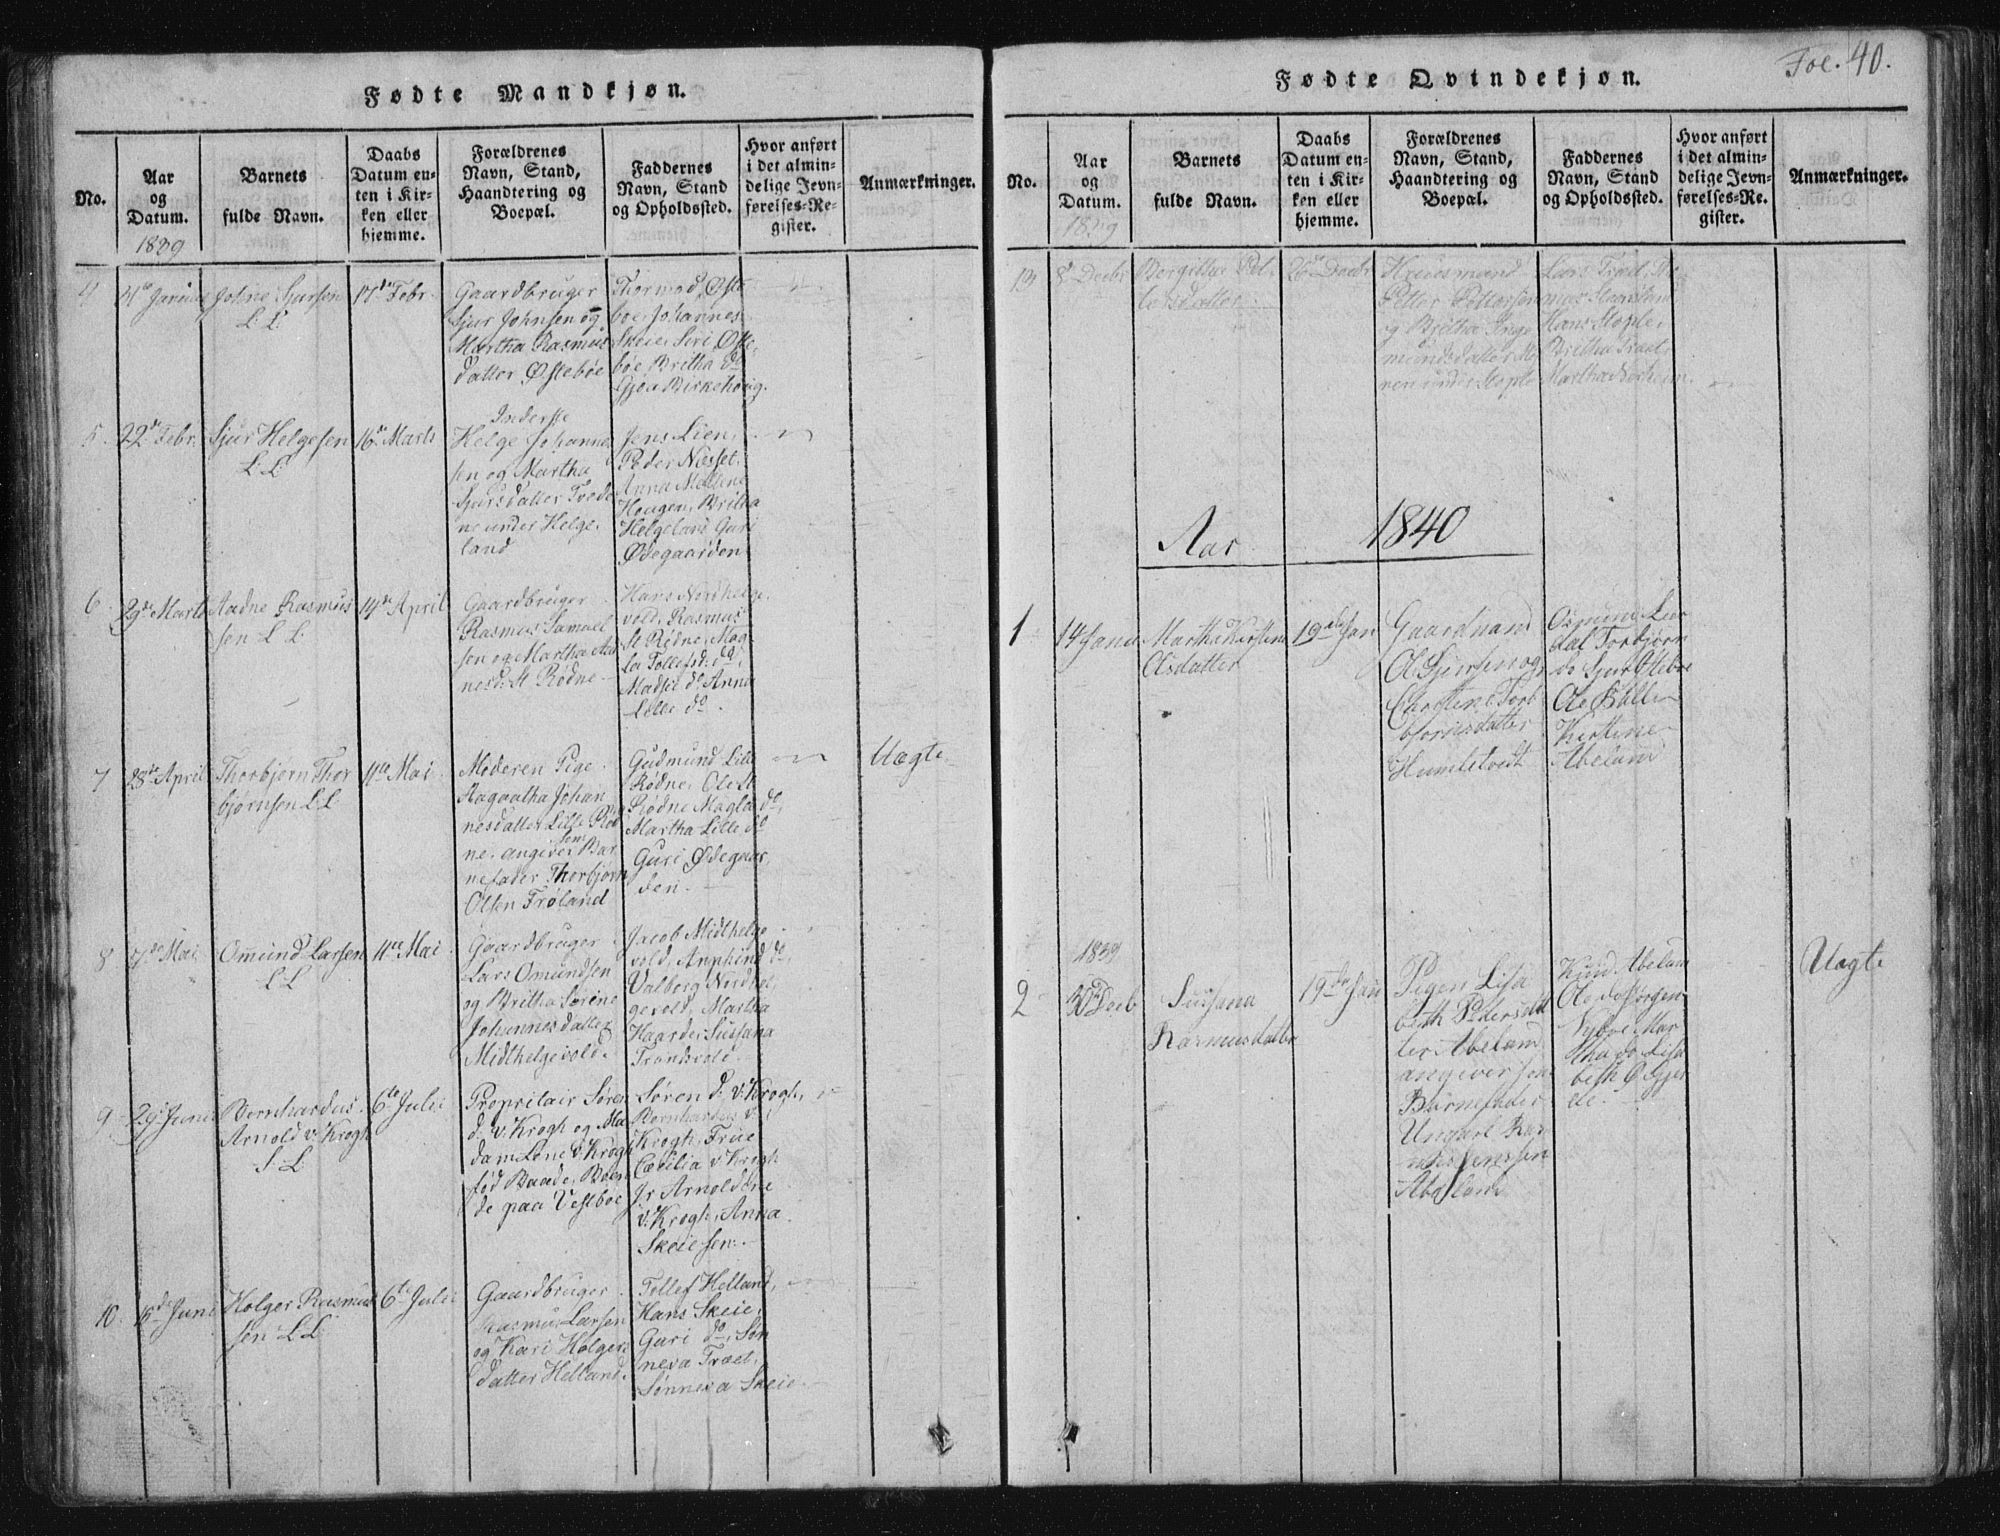 Fødte Mandkjøn.
No.
Aar
og
Datum.
1839
Barnets
fulde Navn.
Daabs
Datum en-
ten i Kir-
ken eller
hjemme.
Forældrenes
Navn, Stand,
Haandtering og
Boepæl.
Faddernes
Navn, Stand
og Opholdssted.
Hvor anført
i det almin-
delige Jevn-
førelses-Re-
gister.
Anmærkninger.
4
31te Januar
Johne Sjursen
L. L.
17de Febr.
Gaardbruger
Sjur Johnsen og
Martha Rasmus
datter Østebøe
Thormod Øste
boe, Johannes
Skeie, Siri Øste,
bøe, Britha do
Gjøa Birkehoug.
5.
22de Febr.
Sjur Helgesen
L. L.
16de Marts
Inderste
Helge Johanne
sen og Martha
Sjursdatter Tvede
ne under Helge
land
Jens Lien,
Peder Næsset,
Anna Malene
Hougen, Britha
Helgeland, Guri
Ødegaarden
6
29de Marts
Aadne Rasmus
sen L. L.
14de April
Gaardbruger
Rasmus Samuel
sen og Martha Aad
nesd: St Rødne
Hans Nordhelge
vold, Rasmus
St Rødne, Mag
la Tollefsd: do,
Madsel do, Anna
Lille do.
7
28de April
Thorbjørn Thor
bjørnsen L. L.
11te Mai
Moderen Pige
Aagaatha Johan
nesdatter Lille Rød
ne, angiver som Bar
nefader Thorbjørn
Olsen Frøland
Gudmund Lille
Rødne, Ole St
Rødne Magla do,
Martha Lille do
Guri Ødegaar
den.
Uægte
8
7de Mai
Omund Larsen
L. L.
11te Mai
Gaardbruger
Lars Omundsen
og Britha Sørine
Johannesdatter
Midthelgevold.
Jacob Midthelge
vold, Amphind do,
Valborg Nordhel
gevold, Martha
Haarde, Susana
Trondsvold
9
29de Juni
Bernhardus
Arnold v. Krogh
S. L.
6te Julii
Propritair Søren
d. v. Krogh og Ma
dam Lene v. Krogh
fød Baade, Boen
de paa Vestbøe
Søren d. v. Krogh,
Bernhardus v.
Krogh, Frue
Cecilia v. Krogh
Jr Arnoldine
v. Krogh, Anna
Skeie sen.
10
15de Juni
Holger Rasmus
sen L. L.
6te Julii
Gaardbruger
Rasmus Larsen
og Kari Holgers
datter Helland.
Tollef Helland,
Hans Skeie,
Guri do, Søn
neva Træet,
Sønneva Skeie.
Fødte Qvindekjøn.
Foe. 40.
No.
Aar
og
Datum.
1839
Barnets
fulde Navn.
Daabs
Datum en-
ten i Kir-
ken eller
hjemme.
Forældrenes
Navn, Stand,
Haandtering og
Boepæl.
Faddernes
Navn, Stand
og Opholdssted.
Hvor anført
i det almin-
delige Jevn-
førelses-Re-
gister.
Anmærkninger.
13
8de Decbr
Borgitha Pet
tersdatter
26de Decbr
Huusmand
Petter Pettersen
og Britha Inge
mundsdatter Mo
nen under Stople
Lars Træet,
Hans Stople,
Britha Træet,
Martha
Aar 1840
1
14 Janu
Martha Kirstine
Olsdatter
19de Jan
Gaardmand
Ol Sjursen og
Carstine Torb
bjørnsdatter
Humlestvedt
Osmund Lun
dal Torbjørn
do Sjur Ølebøe
Ole
Kirstine
Abeland
2
1839
30te Deeb
Susana
Rasmusdatter
19de Jan
Pigen Lisa
beth Pedersdat
ter Abeland
angiver som
Barnefader
Ungkarl Ras
mus
Abeland
Knud Abeland
Ole do Jørgen
Nybøe Mar
tha do Lisa
beth
Uægte